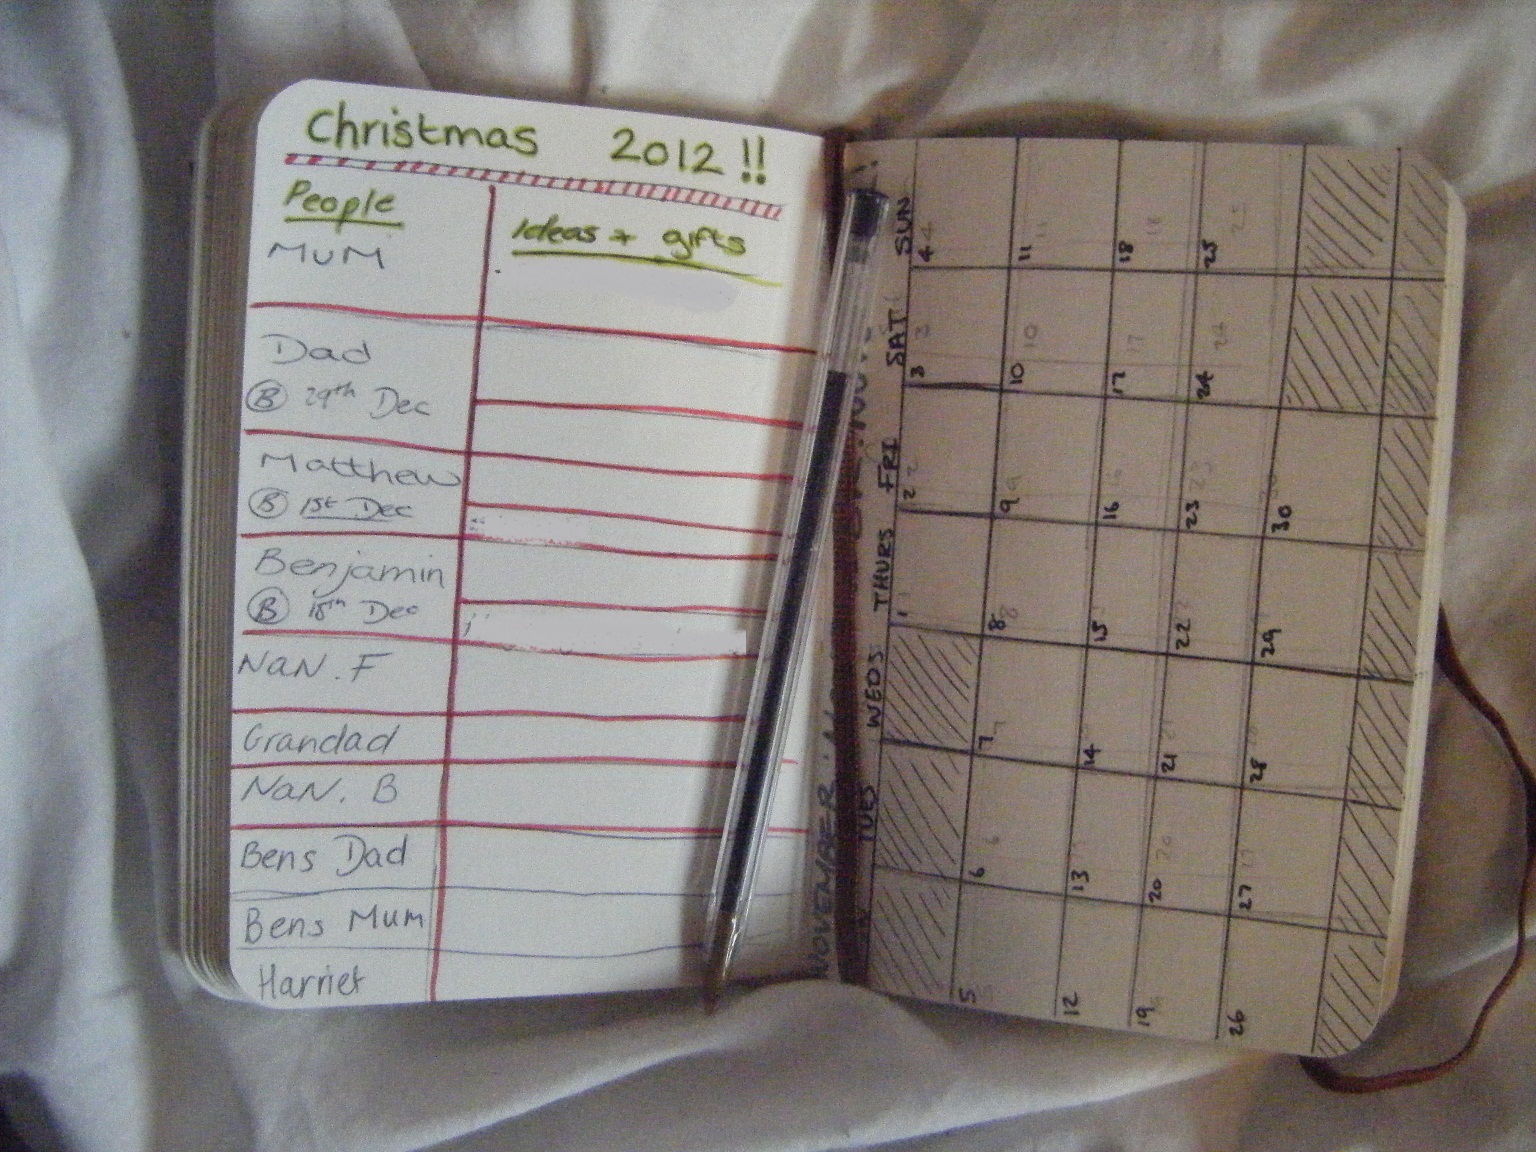 Christmas 2012 !!
People
Ideas + gifts
MUM
Dad
Ⓑ 29th Dec
Matthew
Ⓑ 1st Dec
Benjamin
Ⓑ 18th Dec
NaN. F
Grandad
NaN. B
Bens Dad
Bens Mum
Harriet
NOVEMBER
TUES WEDS THURS FRI SAT SUN
1 2 3 4
5 6 7 8 9 10 11
12 13 14 15 16 17 18
19 20 21 22 23 24 25
26 27 28 29 30